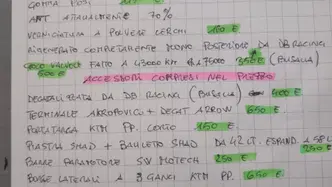 GOMMA POST
ANT ATTUALMENTE 70%
VERNICIATURA A POLVERE CERCHI 150 €
RIGENERATO COMPLETAMENTE MONO POSTERIORE DA DB RACING
GIOCO VALVOLE FATTO A 43000 KM E A 75000 350 € (BUSALLA)
500 €
ACCESSORI COMPRESI NEL PREZZO
DECATALIZZATA DA DB RACING (BUSALLA) 400 €
TERMINALE AKRAPOVICH + DECAT ARROW 650 €
PORTATARGA KTM PP. CORTO 150 €
PIASTRA SHAD + BAULETTO SHAD DA 42 LT. ESPAND. A 58 L
250 €
BARRE PARAMOTORE SW MOTECH 250 €
BORSE LATERALI A 3 GANCI KTM PP. 650 €